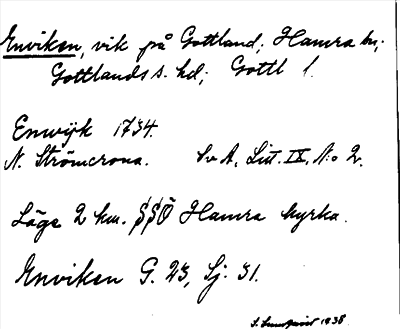 Enviken, vik på Gottland; Hamra sn;
Gottlands s. hd; Gottl l.
Enwijk 1734.
N. Strömcrona. Sv A, Litt. IX, N:o 2.
Läge 2 km. SSÖ Hamra kyrka.
Enviken G. 23, Sj: 31.
1938